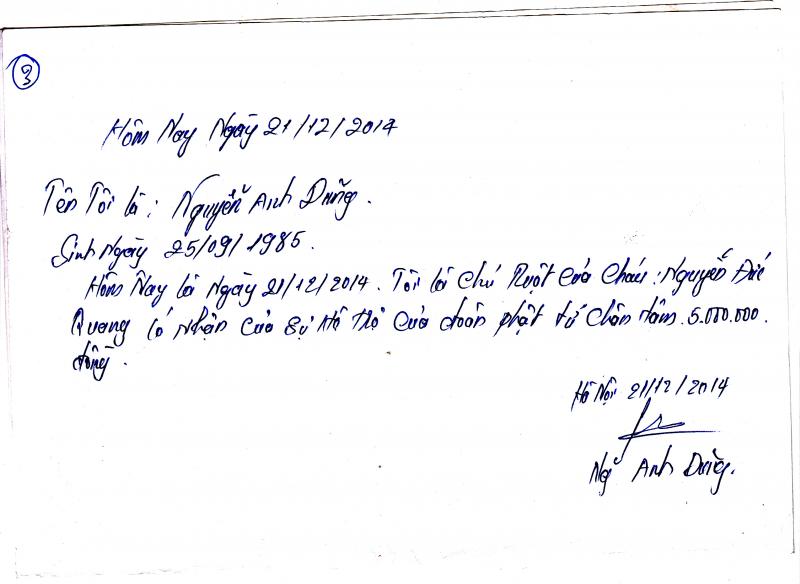 3
Hôm Nay Ngày 21/12/2014
Tên Tôi là : Nguyễn Anh Dũng.
Sinh Ngày 25/09/1985.
Hôm Nay là Ngày 21/12/2014. Tôi là Chú Ruột Của Cháu : Nguyễn Đức
Quang có nhận Của Sự Hỗ Trợ Của đoàn phật tử Chân Tâm 5.000.000.
đồng.
Hà Nội 21/12/2014
Ng~ Anh Dũng.